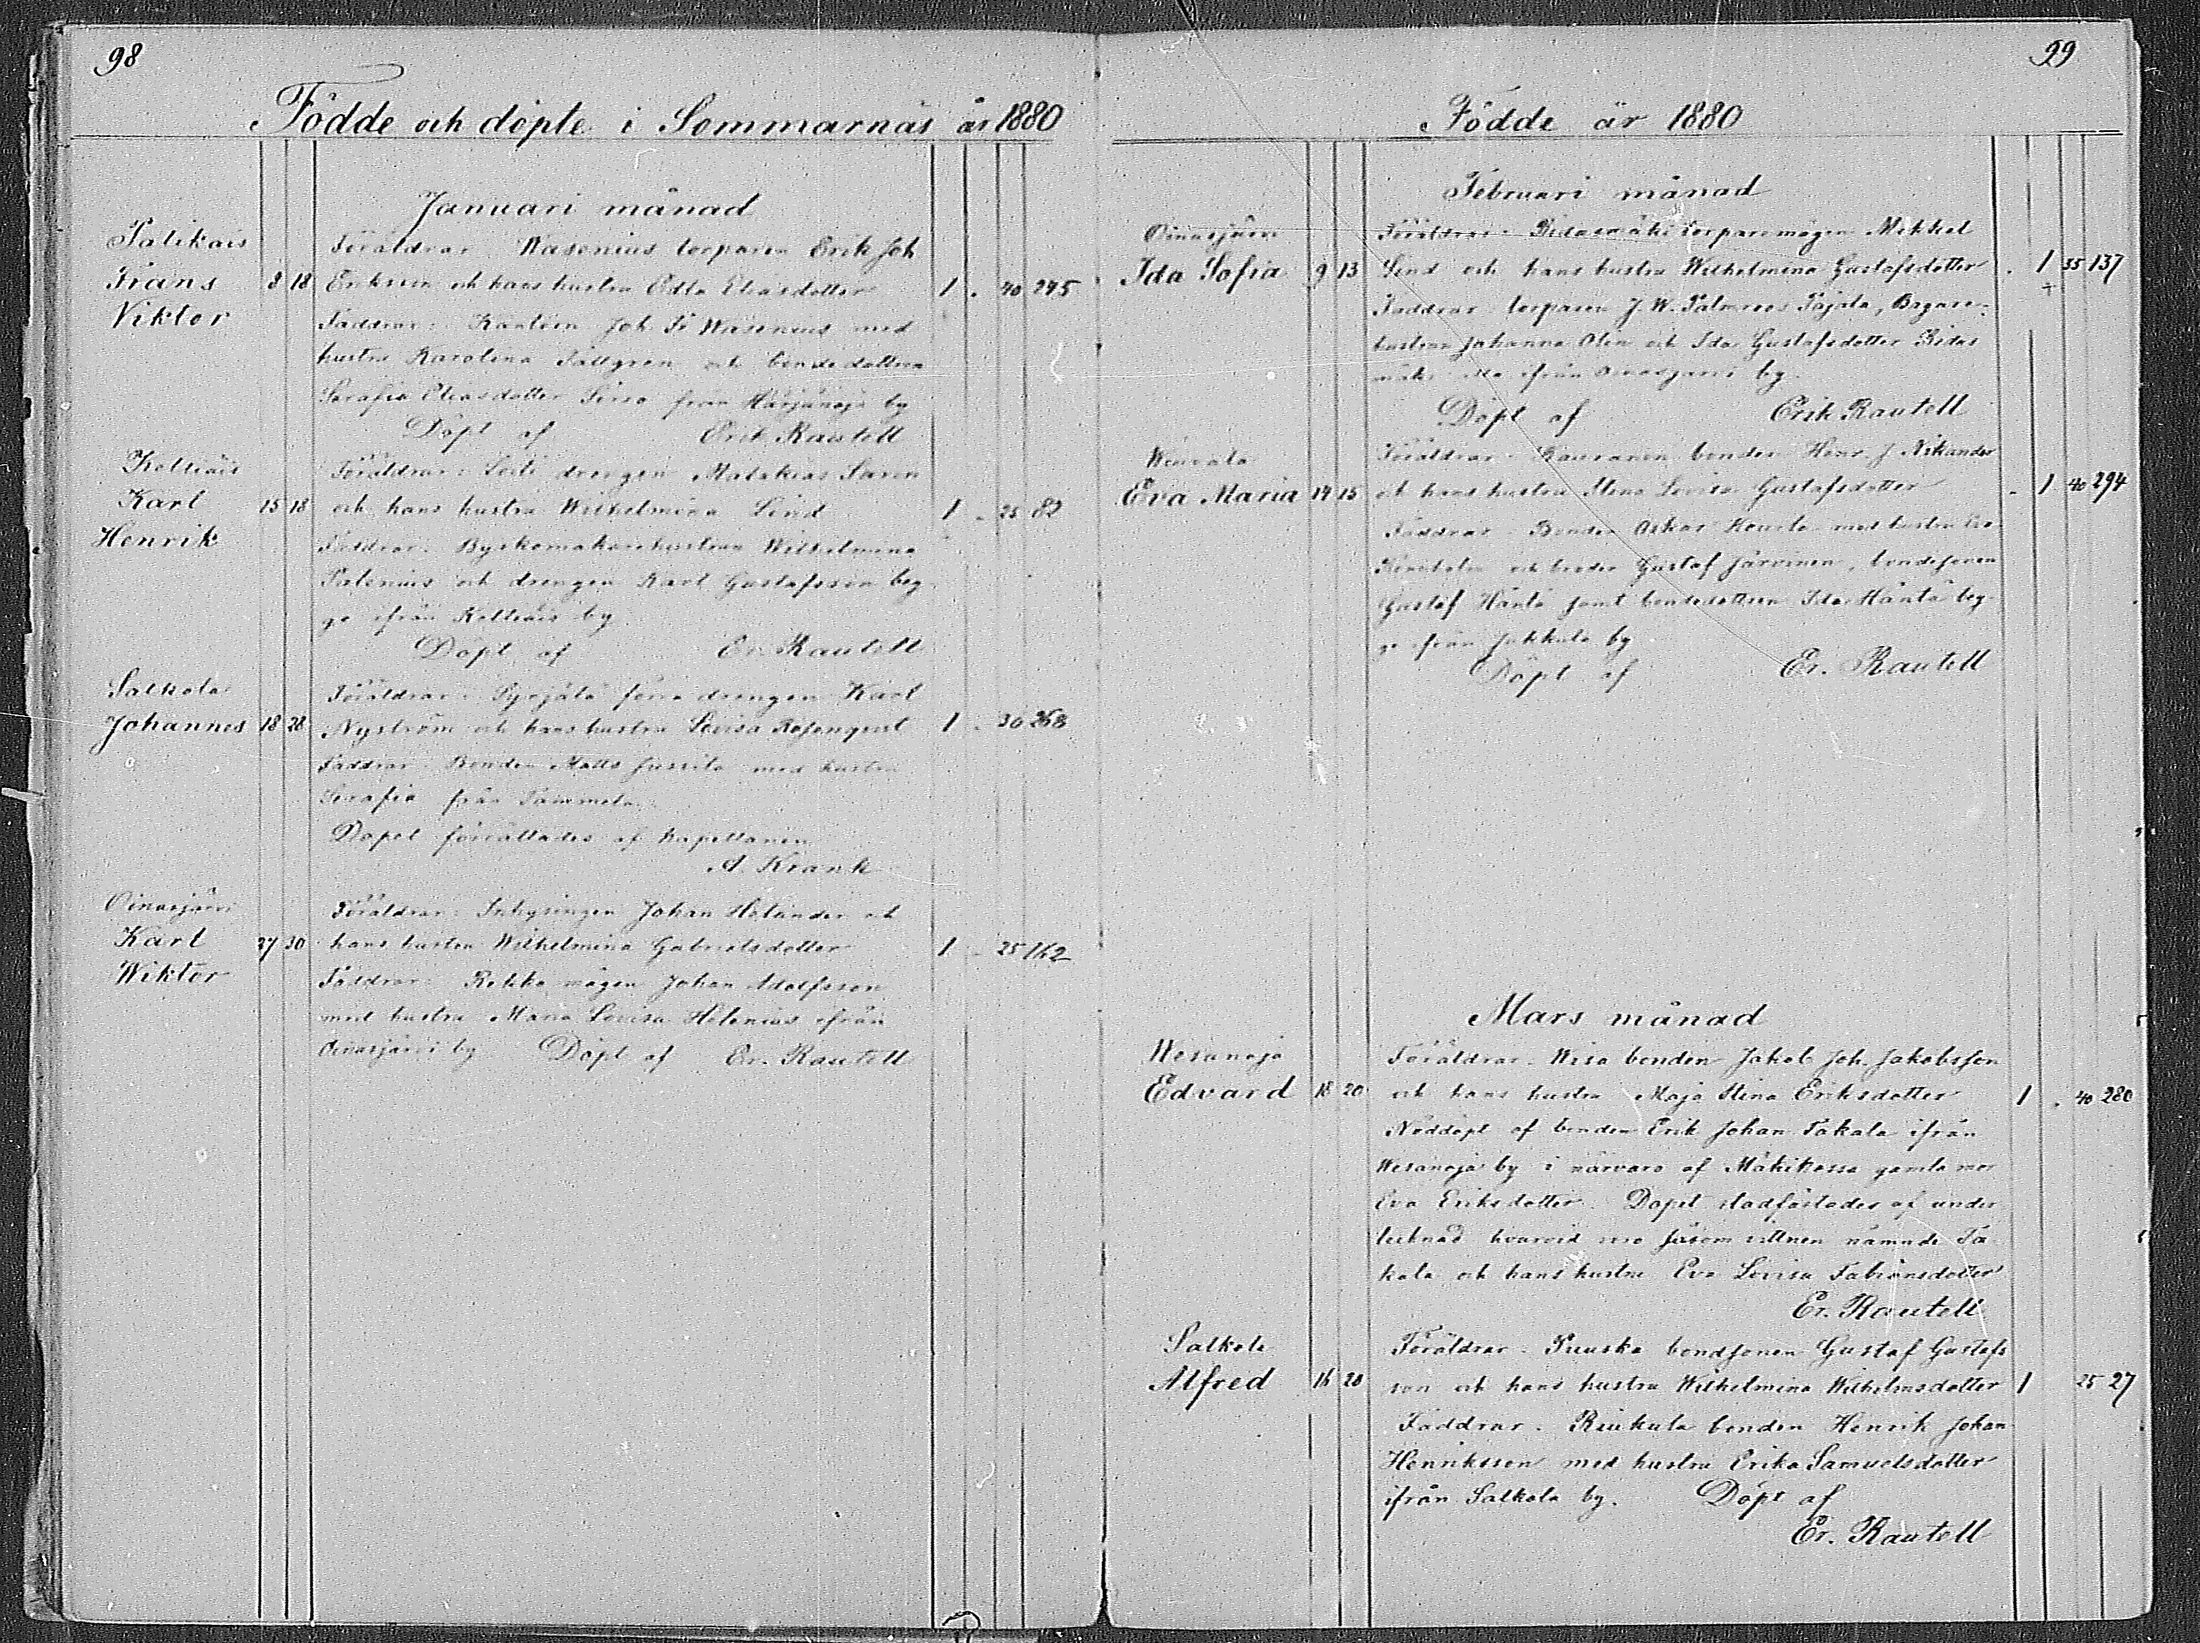 98
Födde och döpte i Sommarnäs år 1880
Januari månad
Palikais
Föräldrar Wasenius torparen Erik Joh
Frans 8 18 Eriksson och hans hustru Edla Eliasdotter 1 . 40 245
Viktor
Faddrar: Kantorn Joh. Fr Wasenius med
hustru Karolina Tallgren och bondedottren
Serafia Eliasdotter Sirro från Härjänoja by
Döpt af Erik Rautell
Koltiais
Föräldrar: drengen Malakias Saren
Karl 15 18 och hans hustru Wilhelmina Lind 1 . 25 82
Henrik
Faddrar: Byskomakarehustrun Wilhelmina
Palenius och drengen Karl Gustafsson beg
ge ifrån Koltiais by
Döpt af Er. Rautell
Salkola
Föräldrar: Pyrjälä förra drengen Karl
Johannes 18 28 Nyström och hans hustru Lovisa Rosenqvist 1 . 30 268
Faddrar: Bonden Matts Jussila med hustru
Serafia från Tammela
Dopet förrättades af Kapellanen
A. Krank
Oinasjärvi
Föräldrar: Inhysingen Johan Helander och
Karl 27 30 hans hustru Wilhelmina Gabrielsdotter 1 . 25 162
Wiktor
Faddrar: Rekko mågen Johan Adolfsson
med hustru Maria Lovisa Helenius ifrån
Oinasjärvi by Döpt af Er. Rautell
99
Födde år 1880
Februari månad
Oinasjärvi
Föräldrar: Ridasmäki torparemågen Mikkel
Ida Sofia 9 13 Lind och hans hustru Wilhelmina Gustafsdotter . 1 35 137
Faddrar torparen J. W. Palmroos Pajala, Bagare-
hustrun Johanna Olin och Ida Gustafsdotter Ridas
mäki alla ifrån Oinasjärvi by.
Döpt af Erik Rautell
Föräldrar: Rauranen bonden Henr. J. Nikander
Eva Maria 14 15 och hans hustru Stina Lovisa Gustafsdotter . 1 40 294
Faddrar: Bonden Oskar med hustru Eva
och bonden Gustaf Järvinen, bondesonen
Gustaf Häntä samt bondedottren Ida Häntä beg-
ge ifrån Jakkula by
Döpt af Er. Rautell
Mars månad
Wesanoja
Föräldrar: Wisa bonden Jakob Joh. Jakobsson
Edvard 18 20 och hans hustru Maja Stina Eriksdotter 1 . 40 280
Nöddöpt af bonden Erik Johan Takala ifrån
Wesanoja by i närvaro af Mäkikossa gamla mor
Eva Eriksdotter. Dopet stadfästades af under
tecknad hvarvid voro såsom vittnen nämnde Ta
kala och hans hustru Eva Lovisa Fabiansdotter
Er. Rautell
Salkola
Föräldrar: Puuska bondsonen Gustaf Gustafs
Alfred 16 20 son och hans hustru Wilhelmina Wilhelmsdotter 1 25 27
Faddrar. Riukula bonden Henrik Johan
Henriksson med hustru Erika Samuelsdotter
ifrån Salkola by. Döpt af
Er. Rautell